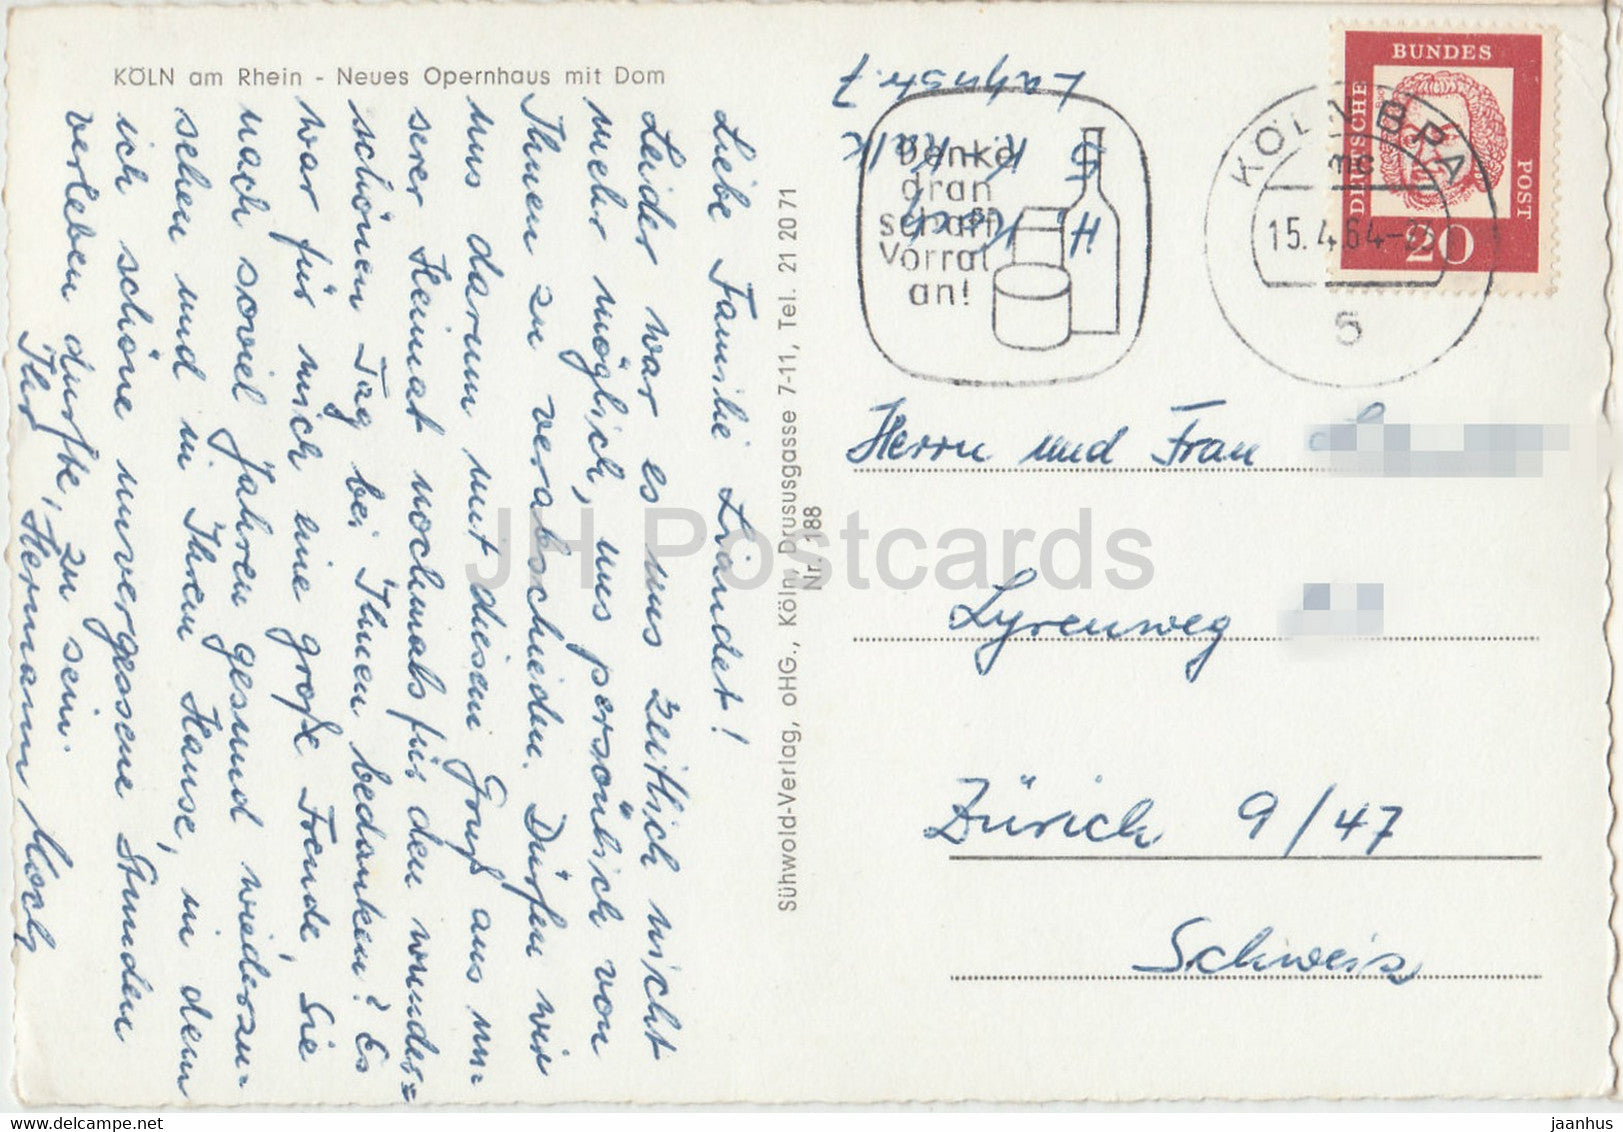 KÖLN am Rhein - Neues Opernhaus mit Dom
Liebe Familie Liandet!
Leider war es uns zeitlich nicht
mehr möglich, uns persönlich von
Ihnen zu verabschieden. Dürfen wir
uns darum mit diesem Gruß aus un-
serer Heimat nochmals für den wunder=
schönen Tag bei Ihnen bedanken? Es
war für mich eine große Freude, Sie
nach soviel Jahren gesund wiederzu-
sehen und in Ihrem Hause, in dem
ich schöne unvergessene Stunden
verleben durfte, zu sein.
Ihr Hermann
Sühwold-Verlag, oHG., Köln, Drususgasse 7-11, Tel. 21 20 71
Nr. 188
H.
5 K.-Kalk
Lahnstr. 7
Denke
dran
schaff
Vorrat
an!
KÖLN BPA
mc
15.4.64-23
5
DEUTSCHE
BUNDES
POST
20
Herrn und Frau
Lyrenweg
Zürich 9/47
Schweiz
JH Postcards
www.delcampe.net
jaanhus